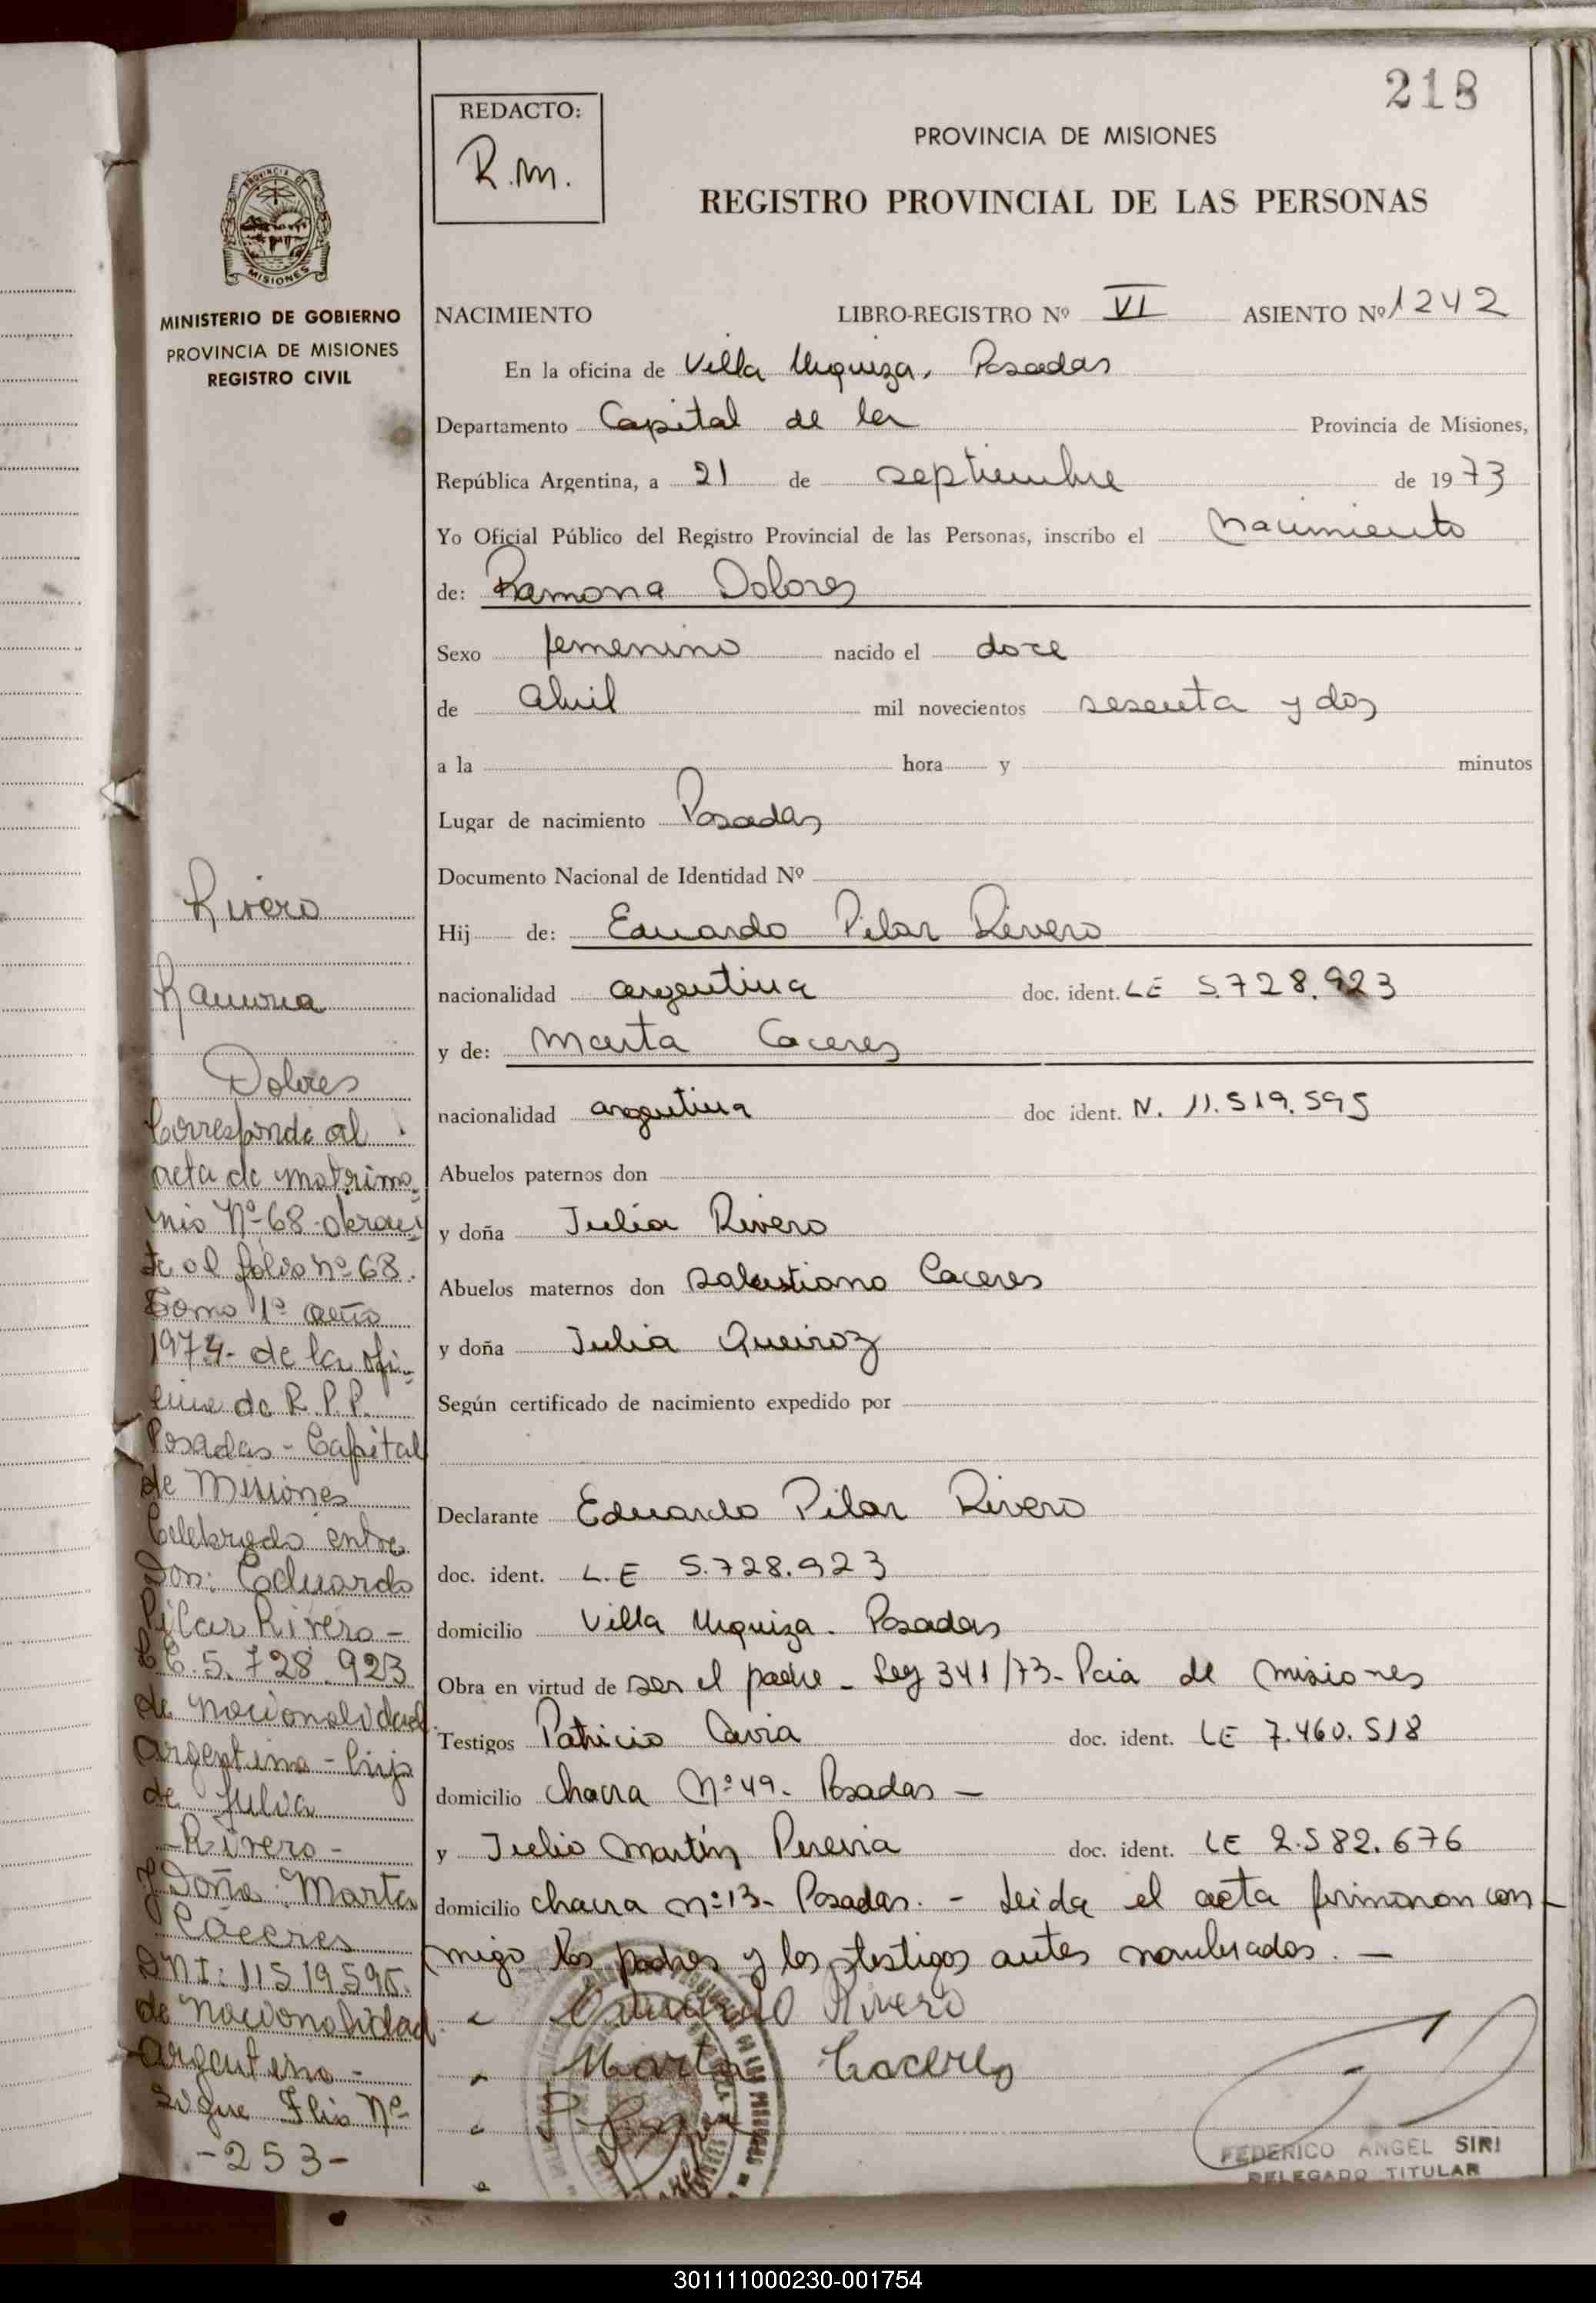 218
REDACTO:
R.M.
PROVINCIA DE MISIONES
REGISTRO PROVINCIAL DE LAS PERSONAS
PROVINCIA DE
MISIONES
MINISTERIO DE GOBIERNO
PROVINCIA DE MISIONES
REGISTRO CIVIL
NACIMIENTO LIBRO-REGISTRO Nº VI ASIENTO Nº 1242
En la oficina de Villa Urquiza, Posadas
Departamento Capital de la Provincia de Misiones,
República Argentina, a 21 de septiembre de 1973
Yo Oficial Público del Registro Provincial de las Personas, inscribo el Nacimiento
de: Ramona Dolores
Sexo femenino nacido el doce
de abril mil novecientos sesenta y dos
a la hora y minutos
Lugar de nacimiento Posadas
Documento Nacional de Identidad Nº
Hij de: Eduardo Pilar Rivero
nacionalidad argentina doc. ident. LE 5.728.923
y de: Marta Caceres
nacionalidad argentina doc ident. N. 11.519.595
Abuelos paternos don
y doña Julia Rivero
Abuelos maternos don Salustiano Caceres
y doña Julia Queiroz
Según certificado de nacimiento expedido por
Declarante Eduardo Pilar Rivero
doc. ident. L.E 5.728.923
domicilio Villa Urquiza. Posadas
Obra en virtud de ser el padre - Ley 341/73 - Pcia de Misiones
Testigos Patricio Cavia doc. ident. LE 7.460.518
domicilio chacra Nº 49. Posadas -
y Julio Martín Pereira doc. ident. LE 2.582.676
domicilio chacra nº 13- Posadas. - Leida el acta firmaron con-
migo los padres y los testigos antes nombrados. -
Eduardo Rivero
Marta Caceres
FEDERICO ANGEL SIRI
DELEGADO TITULAR
Rivero
Ramona
Dolores
Corresponde al
acta de matrimo-
nio Nº 68 obran
te al folio nº 68.
Tomo 1º año
1974- de la ofi-
cina de R.P.P.
Posadas - Capital
de Misiones
Celebrado entre
Don: Eduardo
Pilar Rivero -
5.728.923
de nacionalidad
argentina - hijo
de Julia
-Rivero-
y Doña: Marta
Cáceres
DNI: 11519595.
de nacionalidad
argentina -
Sigue Flio Nº
-253-
301111000230-001754